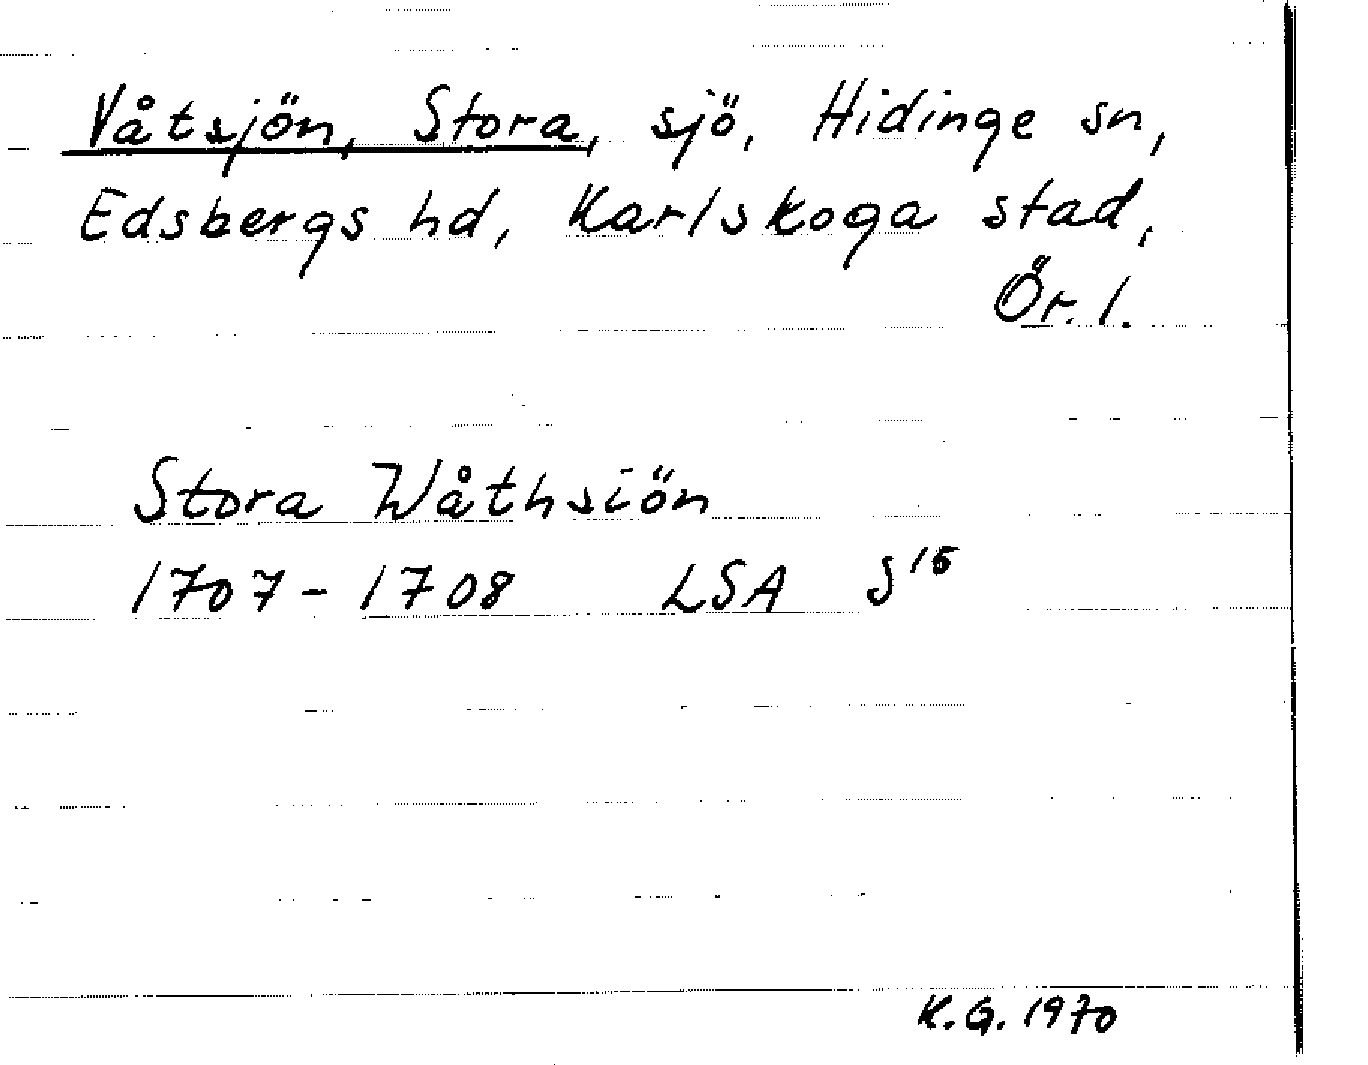 Våtsjön, Stora, sjö, Hidinge sn,
Edsbergs hd, Karlskoga stad,
Ör. l.
Stora Wåthsiön
1707-1708 LSA S¹⁶
K.G. 1970